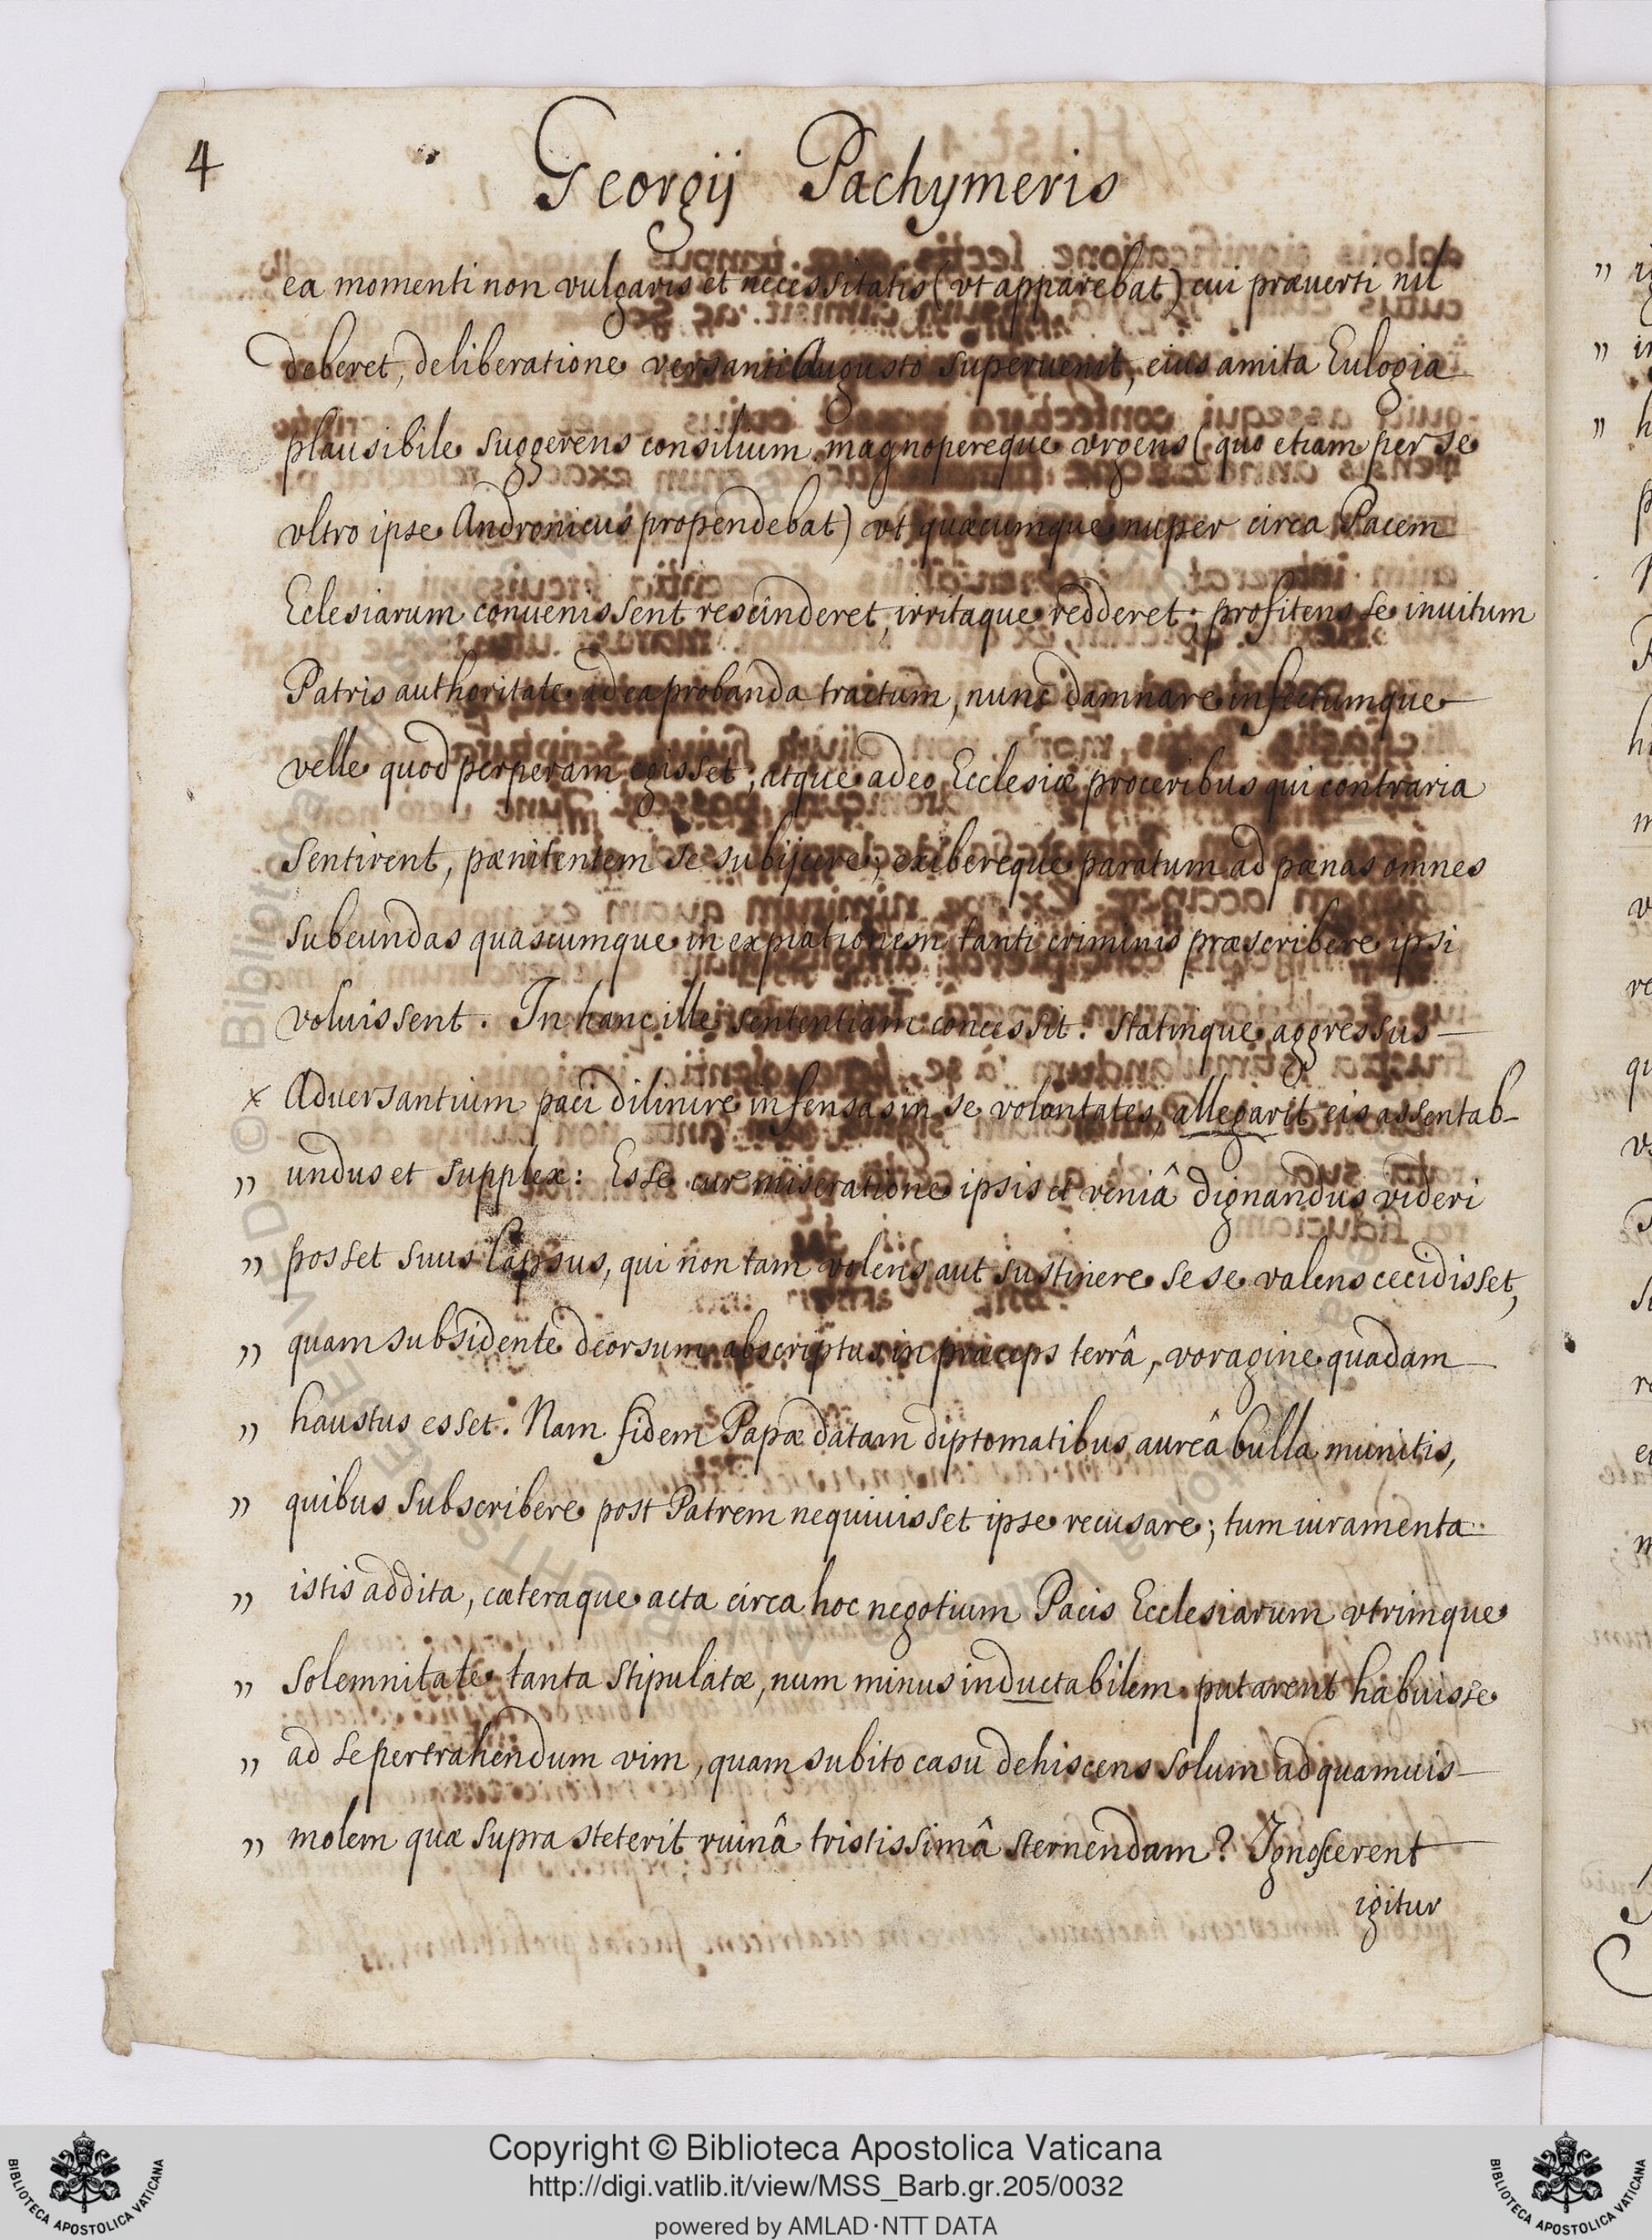 4
Georgij Pachymeris
ea momenti non vulgaris et necessitatis (vt apparebat) cui præuerti nil
deberet, deliberatione versanti Augusto superuenit, eius amita Eulogia
plausibile suggerens consilium magnopereque vrgens (quo etiam per se
vltro ipse Andronicus propendebat) vt quæcumque nuper circa Pacem
Eclesiarum conuenissent rescinderet, irritaque redderet; profitens se inuitum
Patris authoritate ad ea probanda tractum, nunc damnare infectumque
velle quod perperam egisset; atque adeo Ecclesiæ proceribus qui contraria
sentirent, pænitentem se subijcere; exibereque paratum ad pœnas omnes
subeundas quascumque in expiationem tanti criminis præscribere ipsi
voluissent. In hanc ille sententiam concessit. Statimque aggressus
x Aduersantium paci dilinire infensas in se voluntates, allegarit eis assentab-
„ undus et supplex: Esse cur miseratione ipsis et veniâ dignandus videri
„ posset suus lapsus, qui non tam volens aut sustinere sese valens cecidisset,
„ quam subsidente deorsum abscriptus in præceps terrâ, voragine quadam
„ haustus esset. Nam fidem Papæ datam diptomatibus aureâ bulla munitis,
„ quibus subscribere post Patrem nequiuisset ipse recusare; tum iuramenta
„ istis addita, cæteraque acta circa hoc negotium Pacis Ecclesiarum vtrimque
„ solemnitate tanta stipulatæ, num minus inductabilem putarent habuisse
„ ad se pertrahendum vim, quam subito casu dehiscens solum ad quamuis
„ molem quæ supra steterit ruinâ tristissimâ sternendam? Ignoscerent
igitur
Copyright © Biblioteca Apostolica Vaticana
http://digi.vatlib.it/view/MSS_Barb.gr.205/0032
powered by AMLAD·NTT DATA
BIBLIOTECA APOSTOLICA VATICANA
BIBLIOTECA APOSTOLICA VATICANA